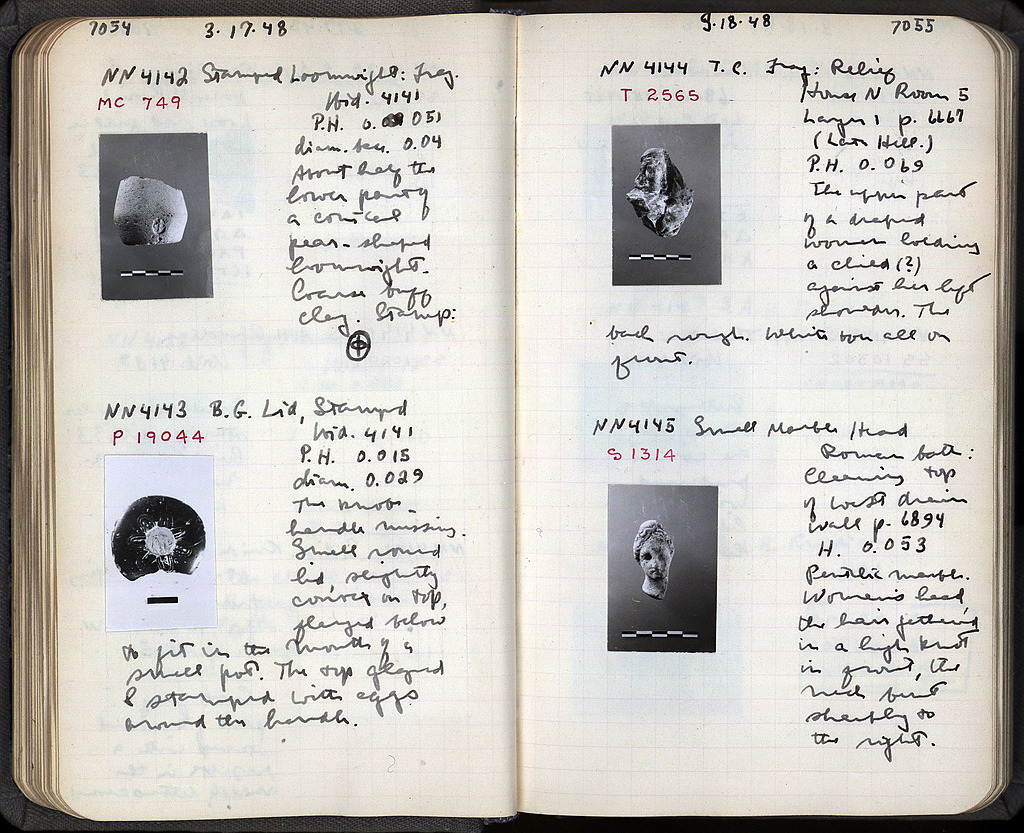 7054
3.17.48
NN 4142 Stamped Loomweight: Frag.
MC 749
Ibid. 4141
P.H. 0.051
diam. bas. 0.04
About half the
lower part of
a conical
pear-shaped
loomweight.
Coarse buff
clay. Stamp:
NN 4143 B.G. Lid, Stamped
P 19044
Ibid. 4141
P.H. 0.015
diam. 0.029
The knob-
handle missing.
Small round
lid, slightly
convex on top,
flanged below
to fit in the mouth of a
small pot. The top glazed
& stamped with eggs
around the handle.
9.18.48
7055
NN 4144 T.C. Frag: Relief
T 2565
House N Room 5
Layer 1 p. 6667
(Late Hell.)
P.H. 0.069
The upper part
of a draped
woman holding
a child (?)
against her left
shoulder. The
back rough. White on all on
front.
NN 4145 Small Marble Head
S 1314
Roman bath:
Cleaning top
of West drain
wall p. 6894
H. 0.053
Pentelic marble.
Woman's head,
the hair gathered
in a high knot
in front, the
neck bent
sharply to
the right.